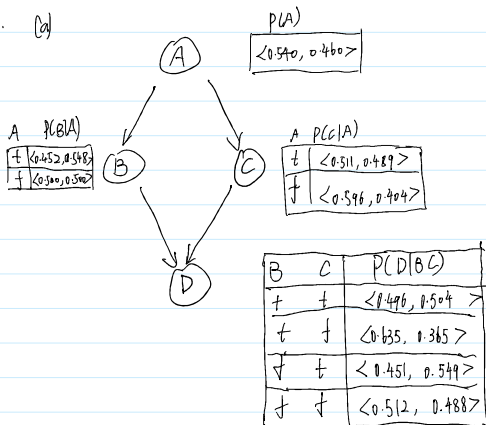 (a)
P(A)
<0.540, 0.460>
A
A P(B|A)
t <0.452, 0.548>
f <0.500, 0.500>
B
C
A P(C|A)
t <0.511, 0.489>
f <0.596, 0.404>
D
B C P(D|BC)
t t <0.496, 0.504>
t f <0.635, 0.365>
f t <0.451, 0.549>
f f <0.512, 0.488>